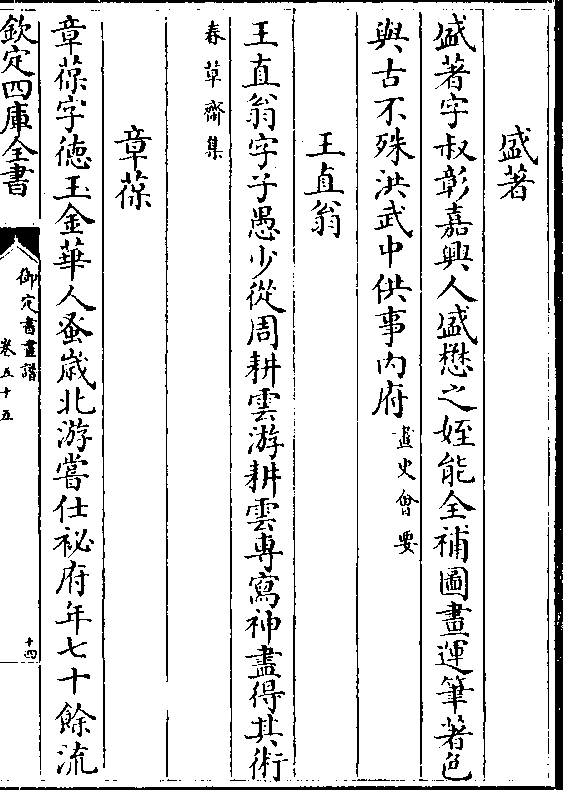 盛著
盛著字叔彰嘉興人盛懋之姪能全補圖畫運筆著色
與古不殊洪武中供事内府畫史會要
王直翁
王直翁字子愚少從周耕雲游耕雲専寫神盡得其術
春草齋集
章葆
章葆字徳玉金華人蚤歳北游嘗仕祕府年七十餘流
欽定四庫全書
御定書畫譜
卷五十五
十四